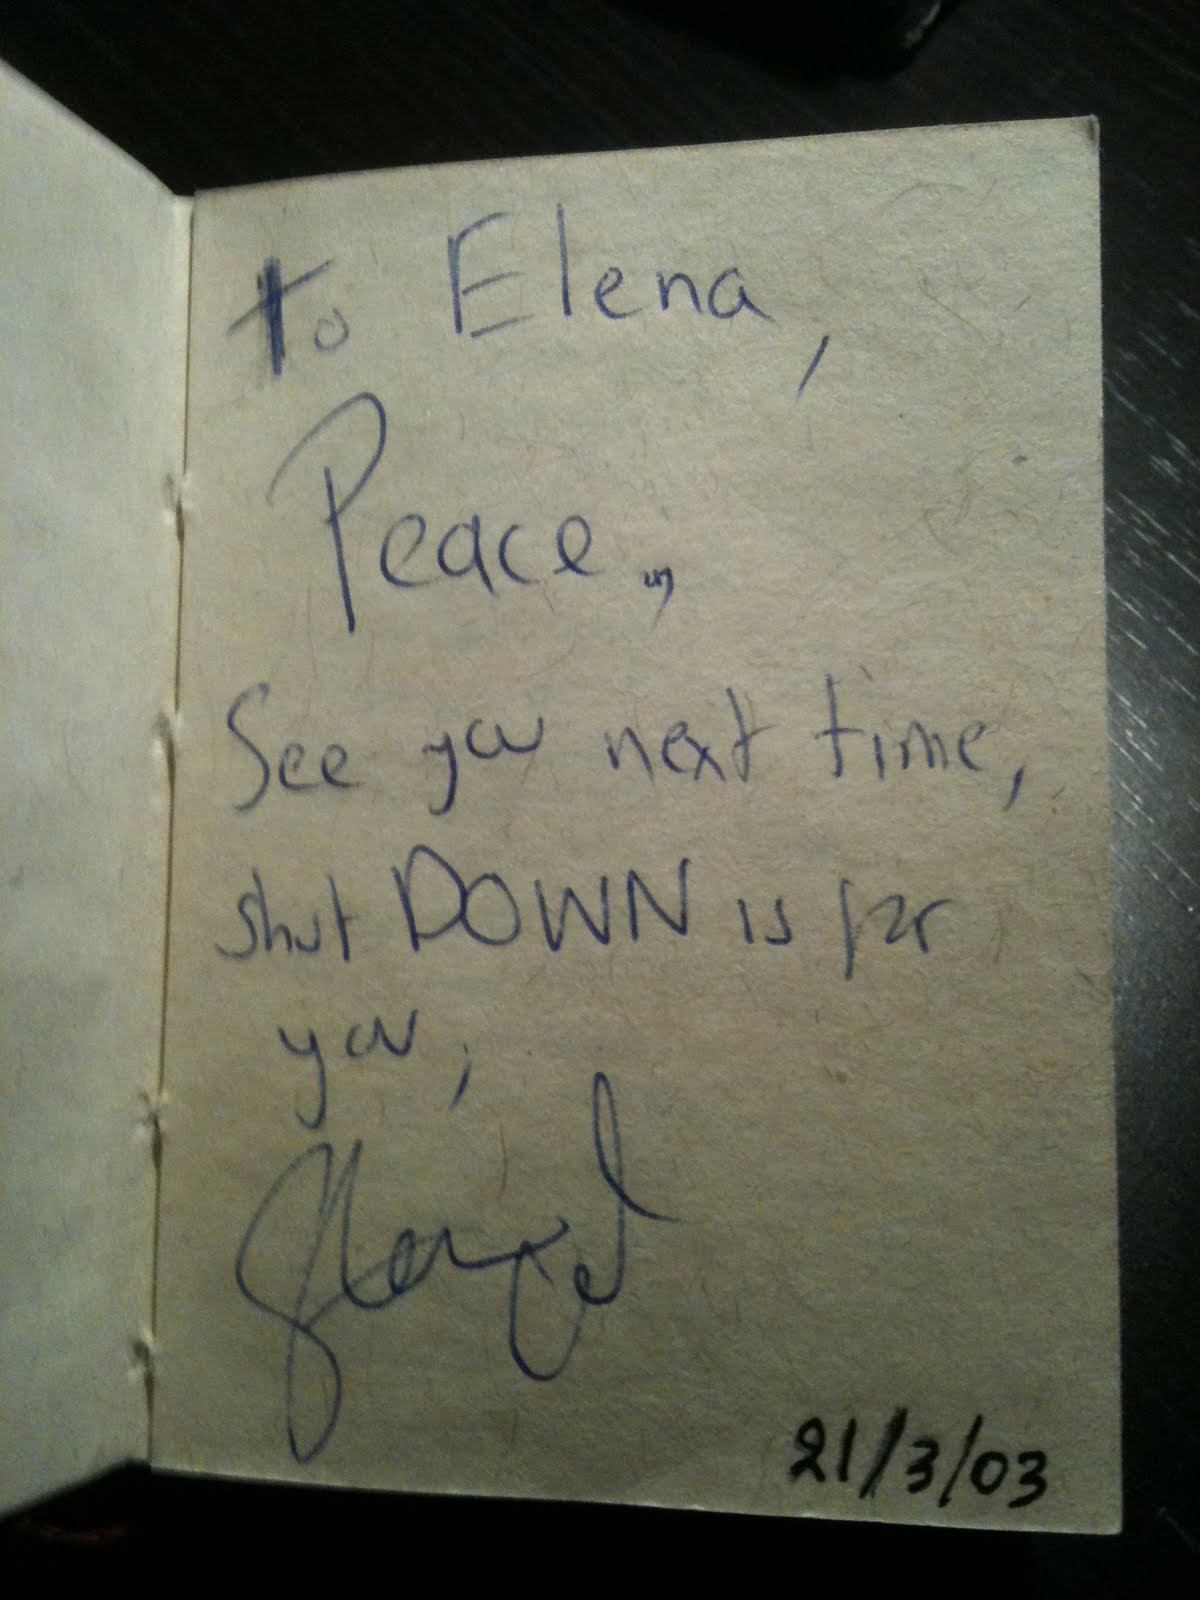 to Elena,
Peace,,
See you next time,
shut DOWN is for
you,
21/3/03